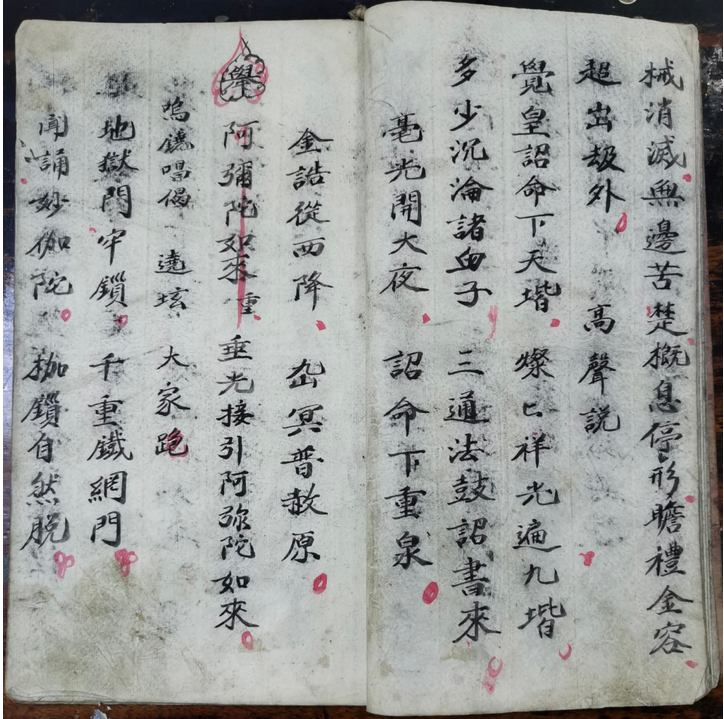 械消滅無邊苦楚概息停形瞻禮金容
超出劫外 高聲説
覺皇詔命下天堦 燦匕祥光遍九堦
多少沉淪諸血子 三通法鼓詔書來
毫光開大夜 詔命下重泉
金誥從西降 出冥普赦原
舉 阿彌陀如來 重 垂光接引阿弥陀如來
鳴鐃唱偈 遶坛 大家跑
地獄門牢鎖 千重鐵網門
聞誦妙伽陀 枷鎖自然脱